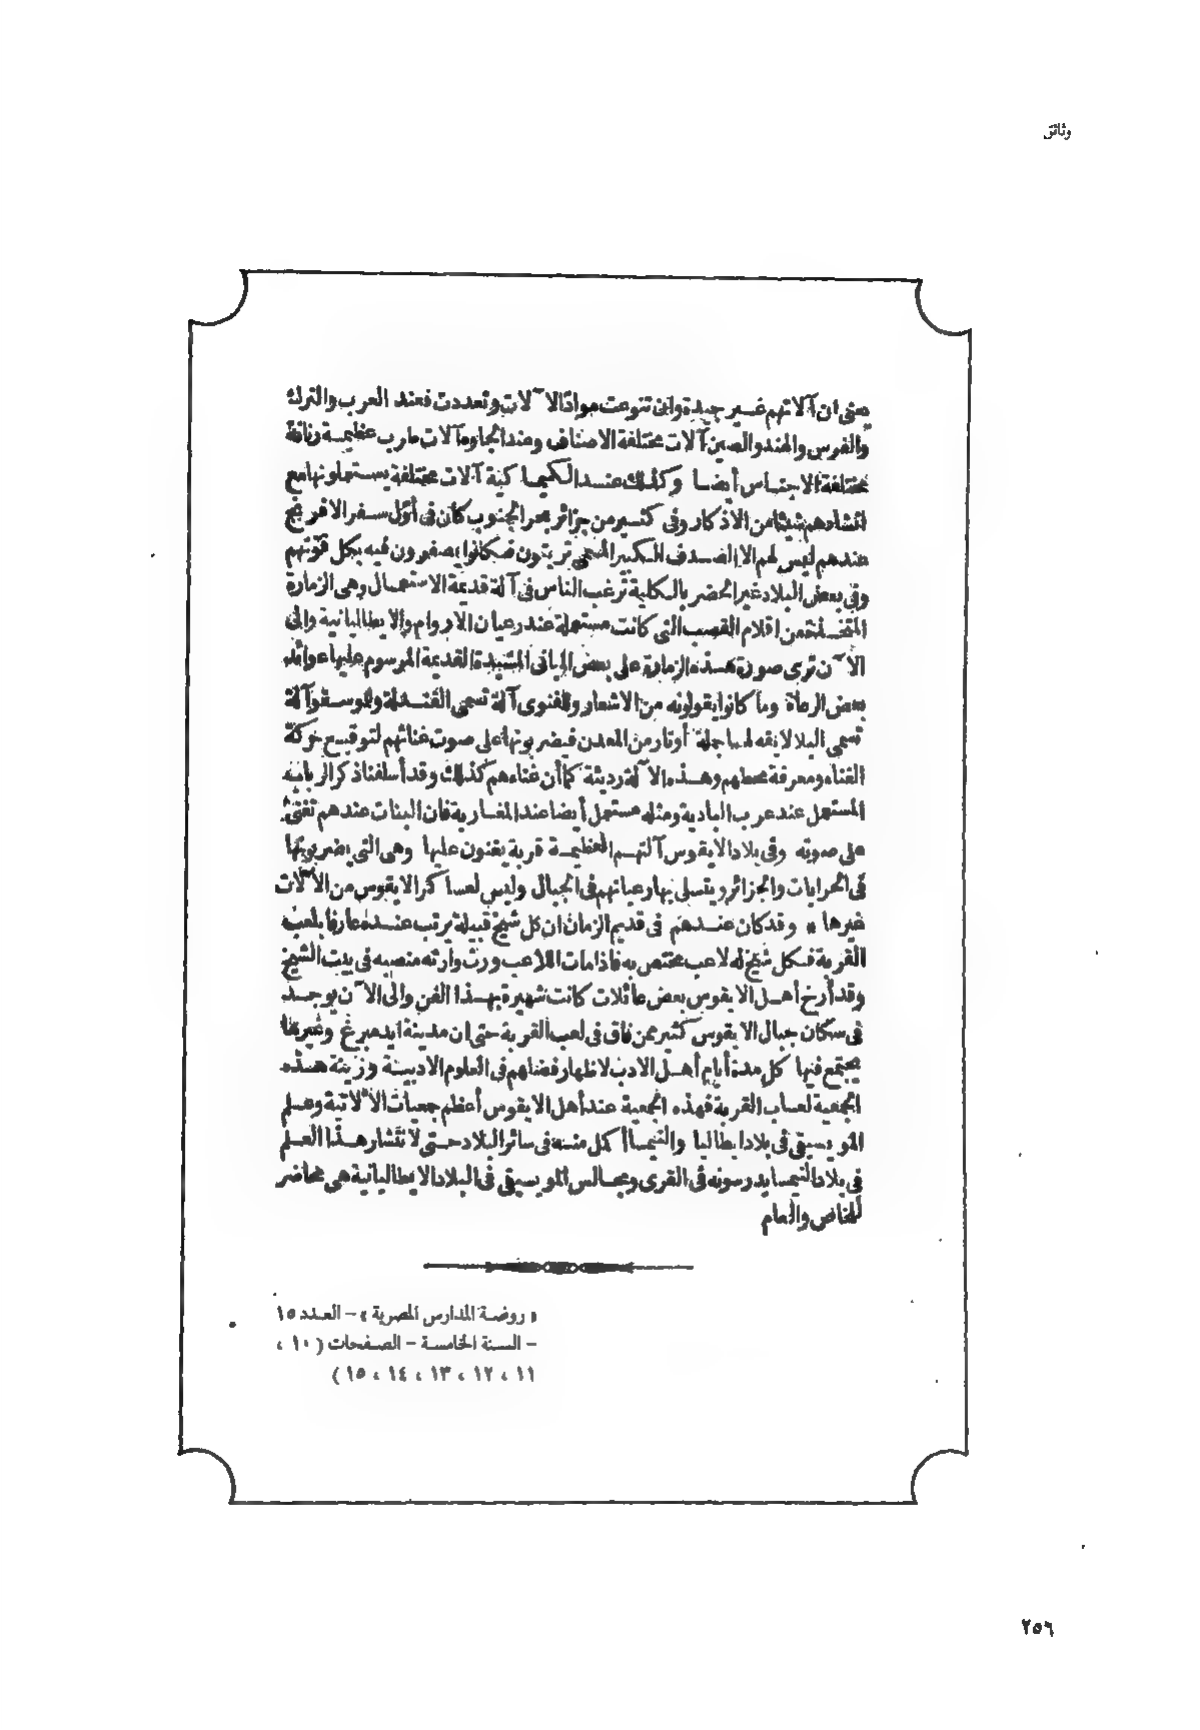 وثائق
يعنى ان آلاتهم غير جيدة وان تنوعت مواد الآلات وتعددت فعند العرب والترك
والفرس والهند والصين آلات مختلفة الاصناف وعند الجاوه آلات مارب عظيمة رنانة
مختلفة الاجناس أيضا وكذلك عند الكيما كية آلات مختلفة يستعملونها مع
انشادهم شيئا من الاذكار وفى كثير من جزائر بحر الجنوب كان فى أول سفر الافرنج
عندهم ليس لهم الا الصدف الكبير المسمى تريتون فكانوا يصفرون فيه بكل قوتهم
وفى بعض البلاد غير الحضر بالكلية ترغب الناس فى آلة قديمة الاستعمال وهى الزمارة
المتخذة من اقلام القصب التى كانت مستعملة عند رعيان الاروام والايطاليانية والى
الآن ترى صورة هذه الزمارة على بعض المبانى المشيدة القديمة المرسوم عليها عوائد
بعض الرعاة وما كانوا يقولونه من الاشعار وللفنوى آلة تسمى القندلة وللموسقو آلة
تسمى البلالايقه لها جملة أوتار من المعدن فيضربونها على صوت غنائهم لتوقيع حركة
الغناء ومعرفة محطهم وهذه الآلة رديئة كما أن غناءهم كذلك وقد أسلفنا ذكر الربابة
المستعمل عند عرب البادية ومثله مستعمل أيضا عند المغاربة فان البنات عندهم تغنى
على صوته وفى بلاد الايقوس آلتهم العظيمة قربة يغنون عليها وهى التى يضربونها
فى الحرابات والجزائر ويتسلى بها رعيانهم فى الجبال وليس لعساكر الايقوس من الآلات
غيرها * وقد كان عندهم فى قديم الزمان ان كل شيخ قبيلة يرتب عنده عارفا بلعب
القربة فكل شيخ له لاعب مختص به فاذا مات اللاعب ورث وارثه منصبه فى بيت الشيخ
وقد أرخ أهل الايقوس بعض عائلات كانت شهيرة بهذا الفن والى الآن يوجد
فى سكان جبال الايقوس كثير ممن فاق فى لعب القربة حتى ان مدينة ايدمبرغ وغيرها
يجتمع فيها كل مدة أيام أهل الادب لاظهار فضلهم فى العلوم الادبية وزينة هذه
الجمعية لعاب القربة فهذه الجمعية عند أهل الايقوس أعظم جمعيات الآلاتية وعلم
المويسيقى فى بلاد ايطاليا والنيمسا أكمل منه فى سائر البلاد حتى لانتشار هذا العلم
فى بلاد النيمسا يدرسونه فى القرى ومجالس المويسيقى فى البلاد الايطاليانية هى محاضر
للخاص والعام
« روضة المدارس المصرية » – العدد ١٥
– السنة الخامسة – الصفحات ( ١٠ ،
١١ ، ١٢ ، ١٣ ، ١٤ ، ١٥ )
٢٥٦